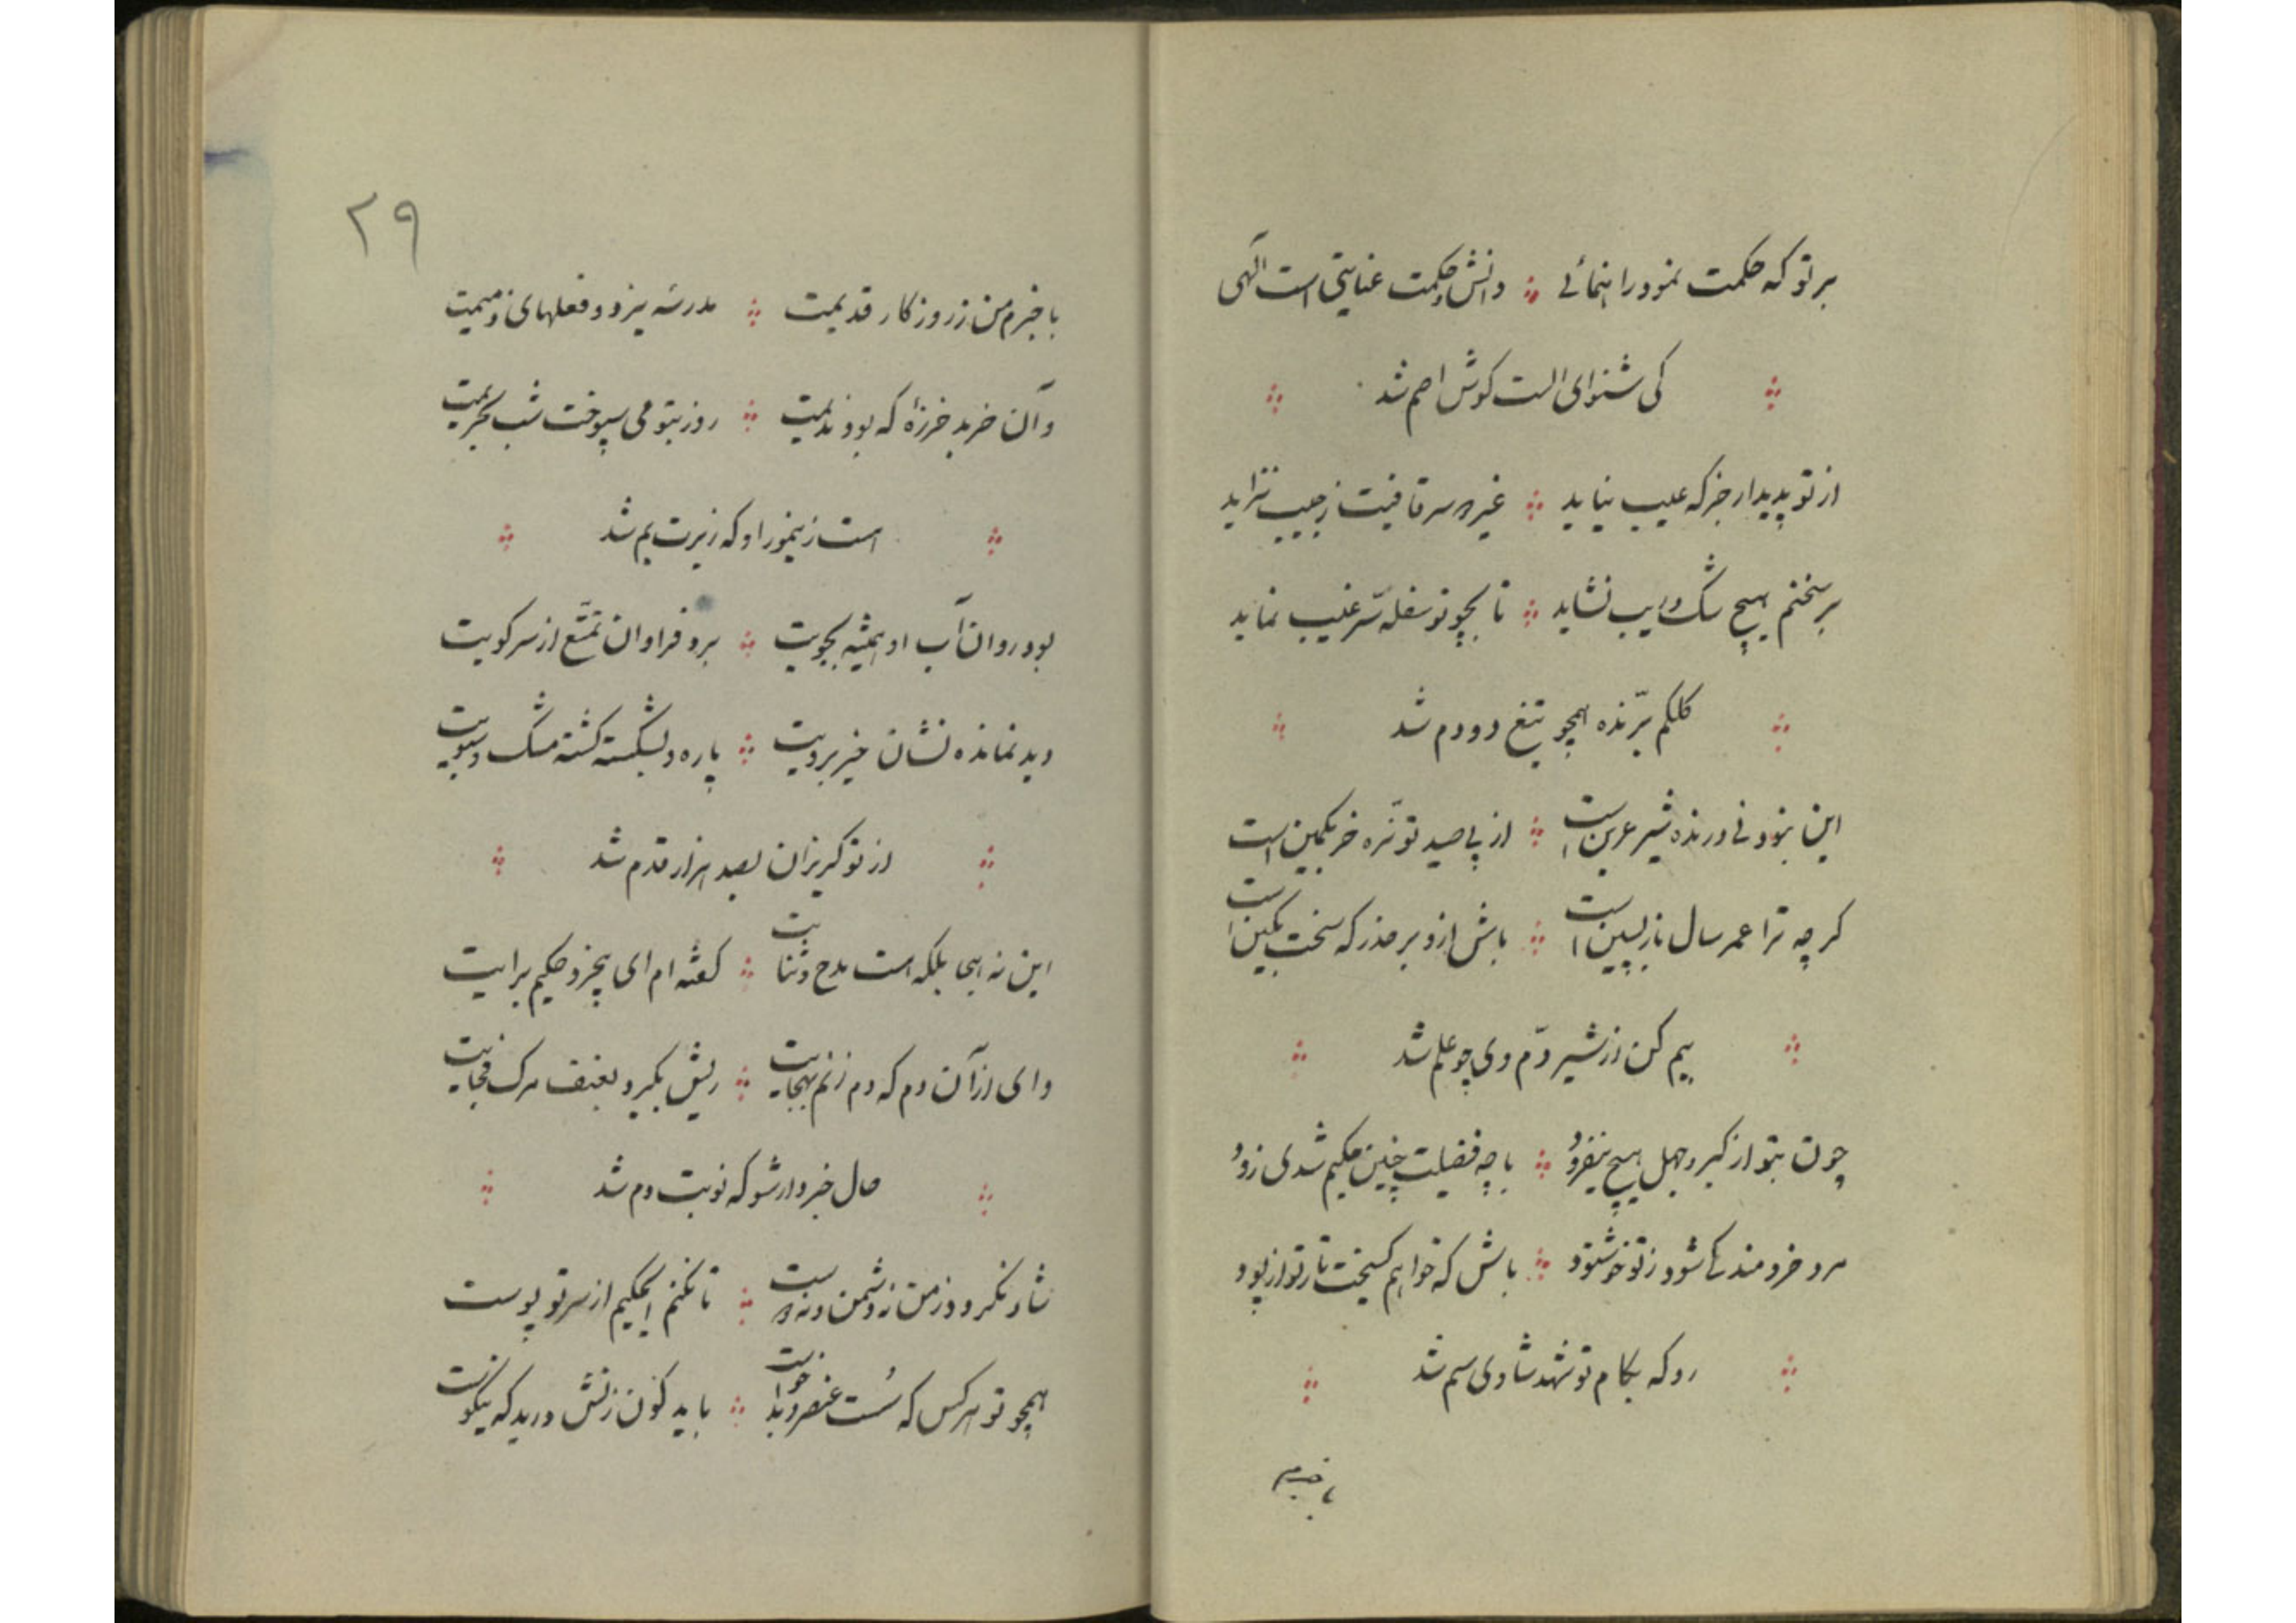 بر تو که حکمت نمود راهنمائی ؞ دانش و حکمت عنایتی است الهی
کی شنوای الست گوش اصم شد
از تو پدیدار جز که عیب نیاید ؞ غیر سرقافیت ز جیب نزاید
بر سخنم هیچ شک و ریب نشاید ؞ تا بچو تو سفله سّر غیب نماید
کلکم برّنده همچو تیغ دو دم شد
این بنود نی درنده شیر عرین است ؞ از پی صید تو نرّه خر بکمین است
کر چه ترا عمر سال بازپسین است ؞ باش ازو بر حذر که سخت بکین است
بیم کن از شیر دّم وی چو علم شد
چون بتو از کبر و جهل هیچ نیفزود ؞ با چه فضیلت چنین حکیم شدی زود
مرد خردمند کی شود ز تو خوشنود ؞ باش که خواهم کسیخت تار تو از پود
رو که بکام تو شهد شادی سم شد
با خبرم
۲۹
با خبرم من ز روزکار قدیمت ؞ مدرسهٔ یزد و فعلهای ذمیمت
وآن خر بد خرزهٔ که بود ندیمت ؞ روز بتو می سپوخت شب بحریمت
است زنیمور او که زیرت یم شد
بود روان آب او همیشه بجویت ؞ برد فراوان تمتّع از سر کویت
دید نمانده نشان خیر برویت ؞ پاره و بشکسته کشته مشک و سبویت
از تو کریزان بصد هزار قدم شد
این نه هجا بلکه است مدح و ثنایت ؞ کفته ام ای بیخرد حکیم برایت
وای از آن دم که دم زنم بهجایت ؞ ریش بکیرد بعنف مرک فجایت
حال خبردار شو که نوبت دم شد
شاد نکردد ز من نه دشمن و نه دوست ؞ تا نکنم ایحکیم از سر تو پوست
همچو تو هر کس که سُست عنصر و بدخواست ؞ باید کون زنش درید که نیکوست